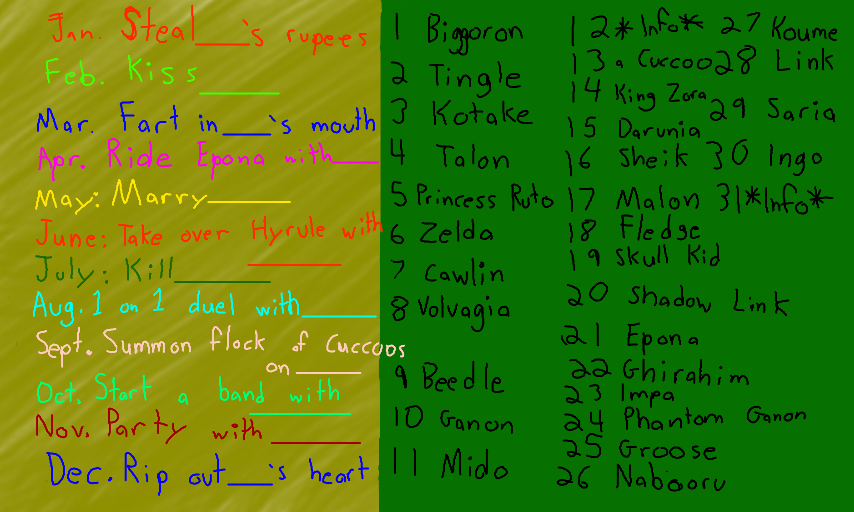 Jan. Steal___'s rupees
Feb. Kiss___
Mar. Fart in___'s mouth
Apr. Ride Epona with___
May: Marry___
June: Take over Hyrule with
___
July: Kill___
Aug. 1 on 1 duel with___
Sept. Summon flock of Cuccoos
on___
Oct. Start a band with
___
Nov. Party with___
Dec. Rip out___'s heart
1 Biggoron
2 Tingle
3 Kotake
4 Talon
5 Princess Ruto
6 Zelda
7 Cawlin
8 Volvagia
9 Beedle
10 Ganon
11 Mido
12 *Info*
13 a Cuccoo
14 King Zora
15 Darunia
16 Sheik
17 Malon
18 Fledge
19 Skull Kid
20 Shadow Link
21 Epona
22 Ghirahim
23 Impa
24 Phantom Ganon
25 Groose
26 Nabooru
27 Koume
28 Link
29 Saria
30 Ingo
31 *Info*